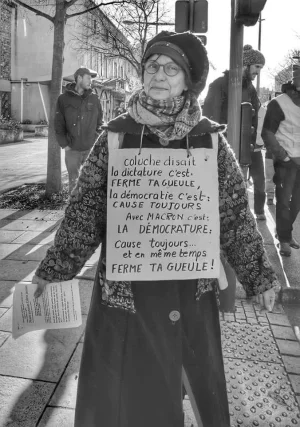 coluche disait
la dictature c'est:
FERME TA GUEULE,
la démocratie c'est:
CAUSE TOUJOURS
Avec MACRON c'est:
LA DÉMOCRATURE:
Cause toujours...
et en même temps
FERME TA GUEULE!